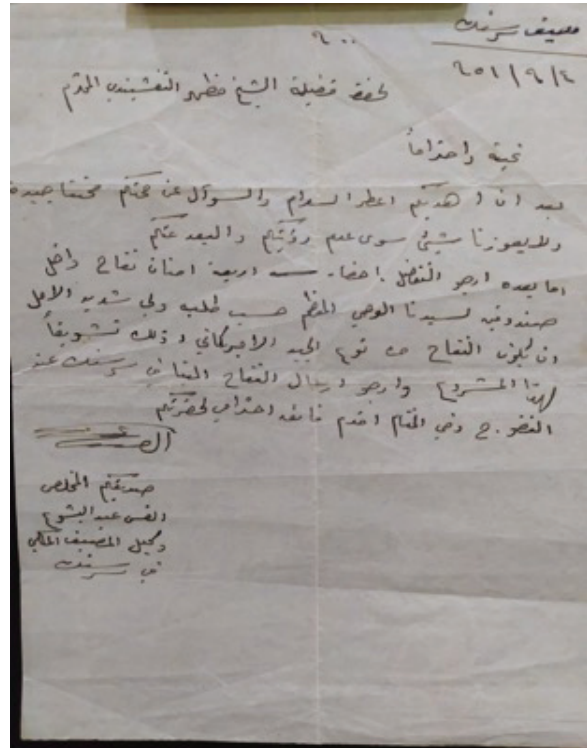 مصيف سرسنك
٩٥١/٩/٤
٩٠٠
لحضرة فضيلة الشيخ مظهر النقشبندي المحترم
تحية واحتراماً
بعد ان اهديكم اعطر السلام والسؤال عن صحتكم صحتنا جيدة
ولا يعوزنا شيئ سوى عدم رؤيتكم والبعد عنكم
اما بعده ارجو التفضل باحضار اربعة امنان تفاح داخل
صندوقين لسيدنا الوصي المعظم حسب طلب ولي شديد الامل
ان يكون التفاح من نوع الجيد الاميركاني وذلك تشويقاً
لهذا المشروع وارجو ارسال التفاح الينا في سرسنك عند
النضوج وفي الختام اقدم فائق احترامي لحضرتكم
صديقكم المخلص
القس عبد اليشوع
وكيل المصيف الملكي
في سرسنك